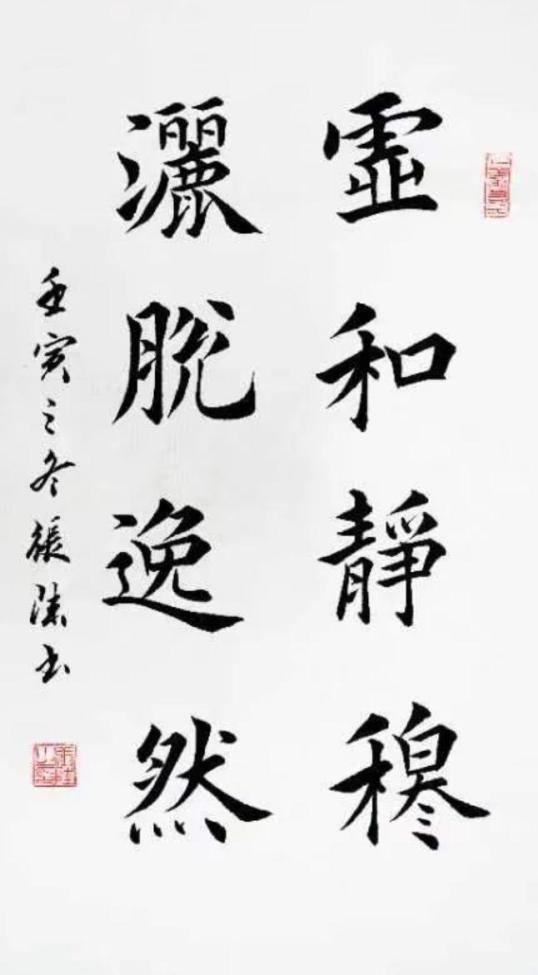 虛和靜穆
灑脫逸然
壬寅之冬張书